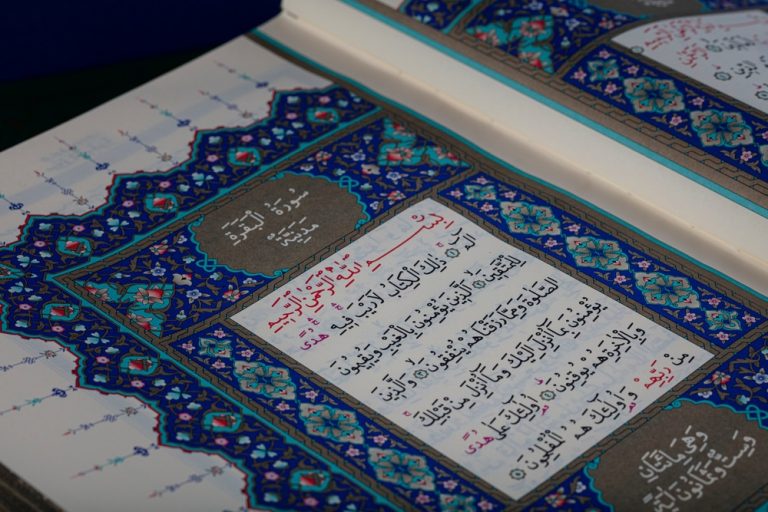 سُورَةُ الْبَقَرَةِ
مَدَنِيَّةٌ
بِسْمِ اللّٰهِ الرَّحْمٰنِ الرَّحِيمِ
الٓمٓ ۝ ذٰلِكَ الْكِتَابُ لَا رَيْبَ فِيهِ هُدًى
لِلْمُتَّقِينَ ۝ الَّذِينَ يُؤْمِنُونَ بِالْغَيْبِ وَيُقِيمُونَ
الصَّلٰوةَ وَمِمَّا رَزَقْنَاهُمْ يُنْفِقُونَ ۝ وَالَّذِينَ
يُؤْمِنُونَ بِمَا أُنْزِلَ إِلَيْكَ وَمَا أُنْزِلَ مِنْ قَبْلِكَ
وَبِالْاٰخِرَةِ هُمْ يُوقِنُونَ ۝ أُولٰئِكَ عَلٰى هُدًى
مِنْ رَبِّهِمْ وَأُولٰئِكَ هُمُ الْمُفْلِحُونَ ۝
وَهِيَ مِائَتَانِ
وَسِتٌّ وَثَمَانُونَ اٰيَةً